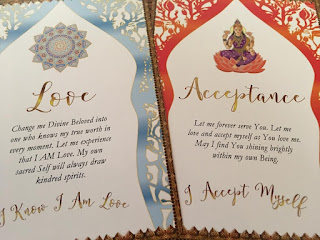 Love
Change me Divine Beloved into
one who knows my true worth in
every moment. Let me experience
that I AM Love. My own
sacred Self will always draw
kindred spirits.
I Know I Am Love
Acceptance
Let me forever serve You. Let me
love and accept myself as You love me.
May I find You shining brightly
within my own Being.
I Accept Myself